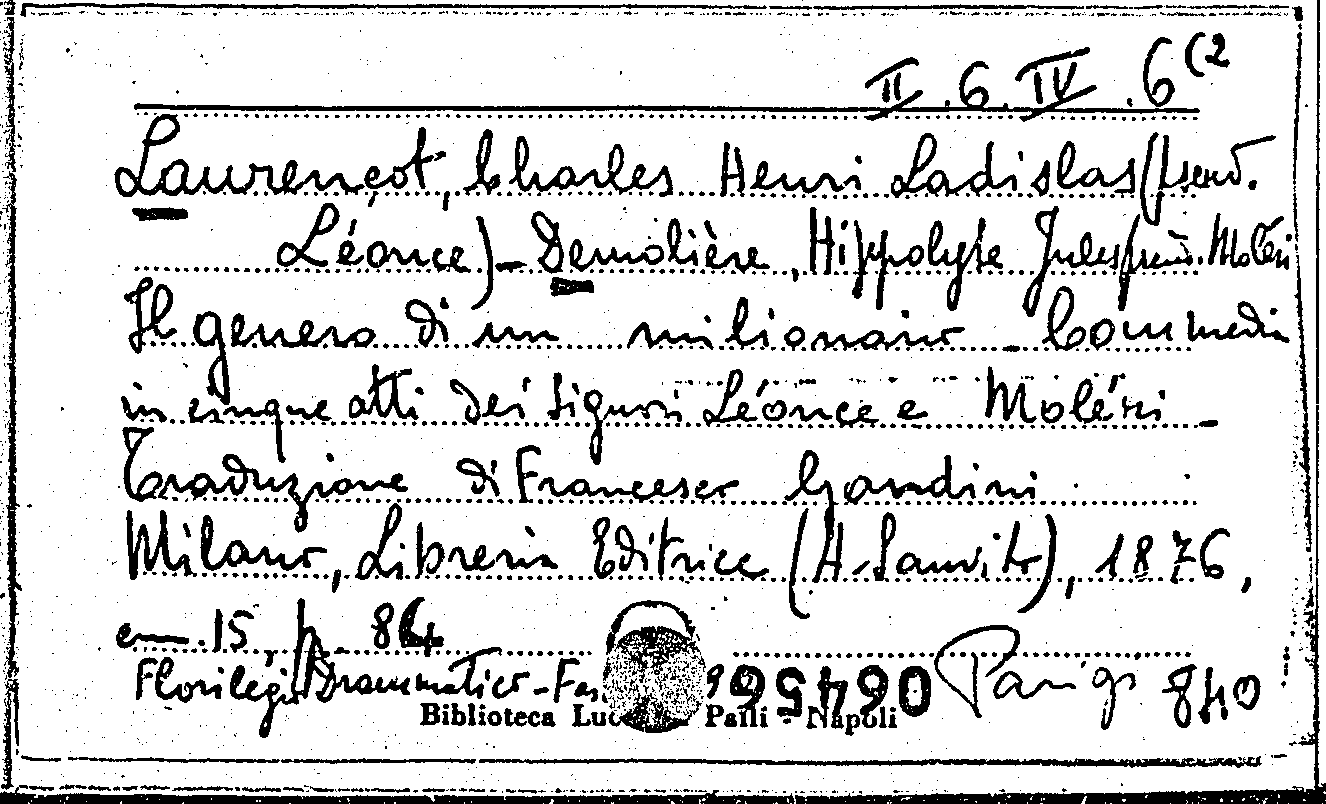 II.6.IV.6(2
Laurençot, Charles Henri Ladislas (pseud.
Léonce) - Demolière, Hippolyte Jules (pseud. Moléri
Il genero di un milionario - Commedia
in cinque atti dei signori Léonce e Moléri -
Traduzione di Francesco Gandini
Milano, Libreria Editrice (A. Sanvito), 1876,
cm. 15, p. 84
Florilegio Drammatico - Fas. Parigi 840
06456
Biblioteca Luc Palli - Napoli